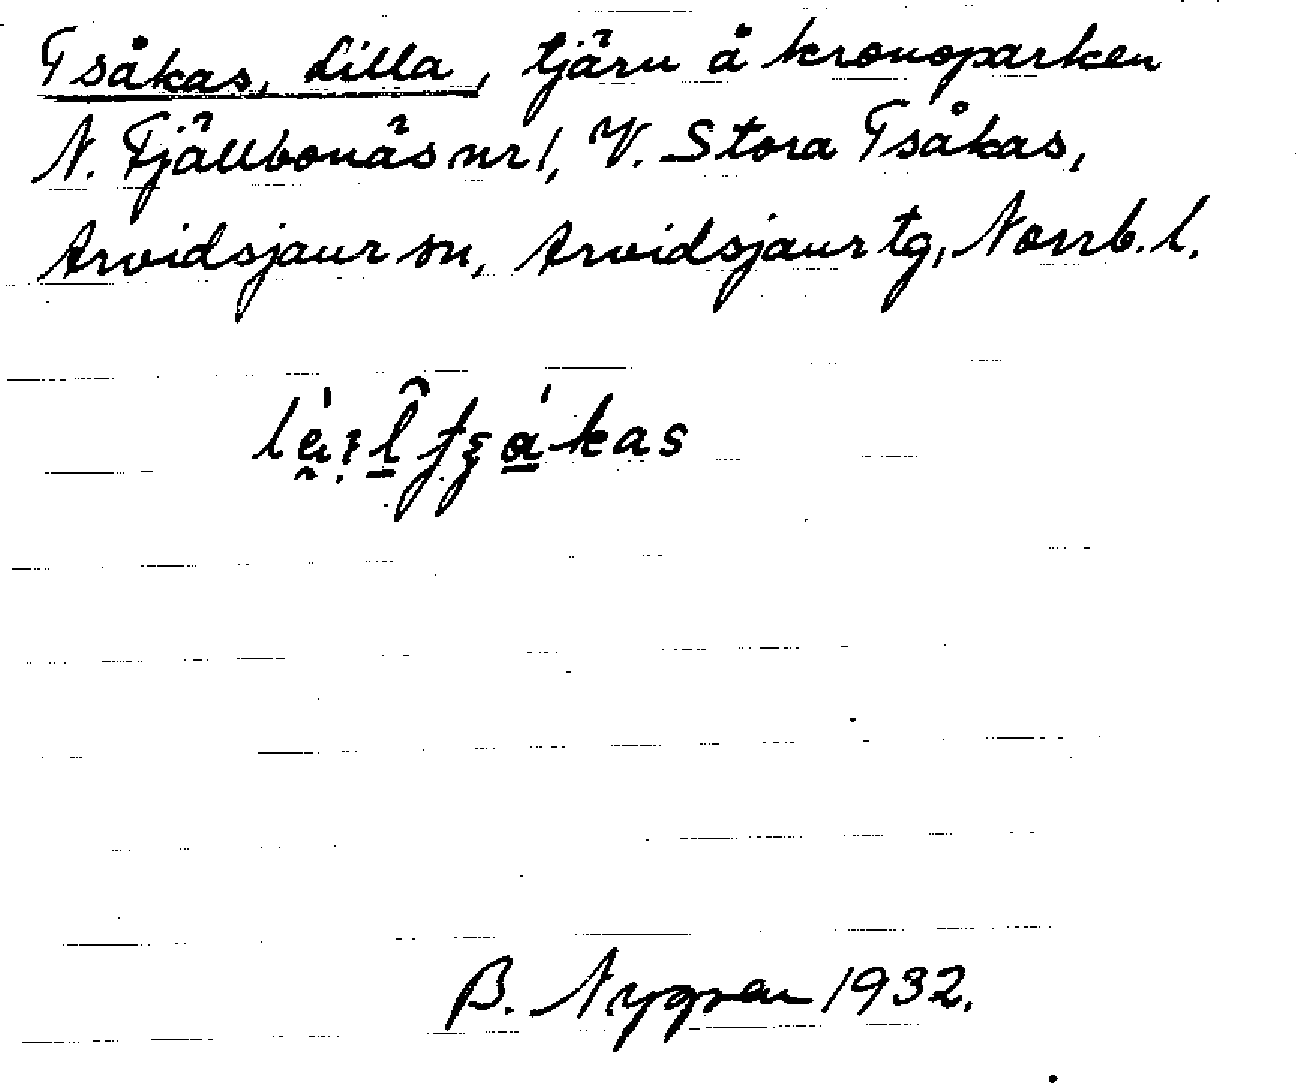 Tsåkas, Lilla, tjärn å kronoparken
N. Fjällbonäs nr 1, V. Stora Tsåkas,
Arvidsjaur sn, Arvidsjaur tg, Norrb. l.
B. Nygren 1932.